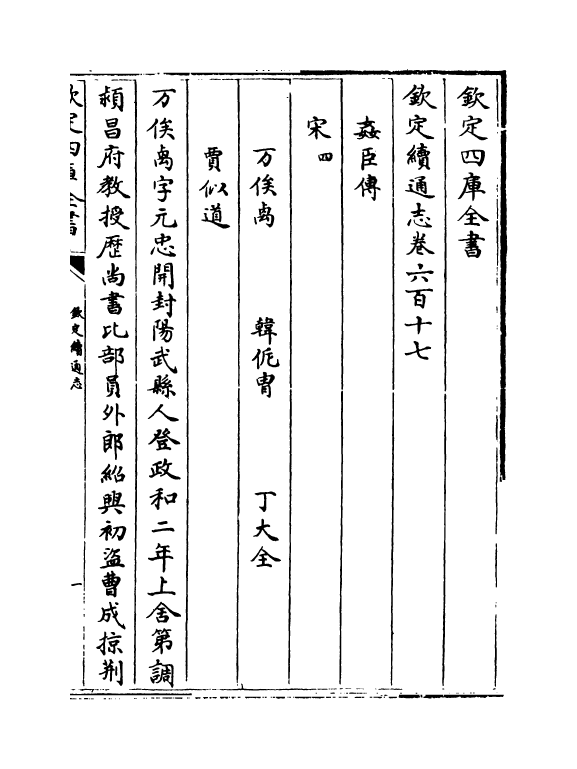 欽定四庫全書
欽定續通志卷六百十七
姦臣傳
宋四
万俟卨 韓侂胄 丁大全
賈似道
万俟卨字元忠開封陽武縣人登政和二年上舍第調
頴昌府教授歴尚書比部員外郎紹興初盗曹成掠荆
欽定四庫全書
欽定續通志
一